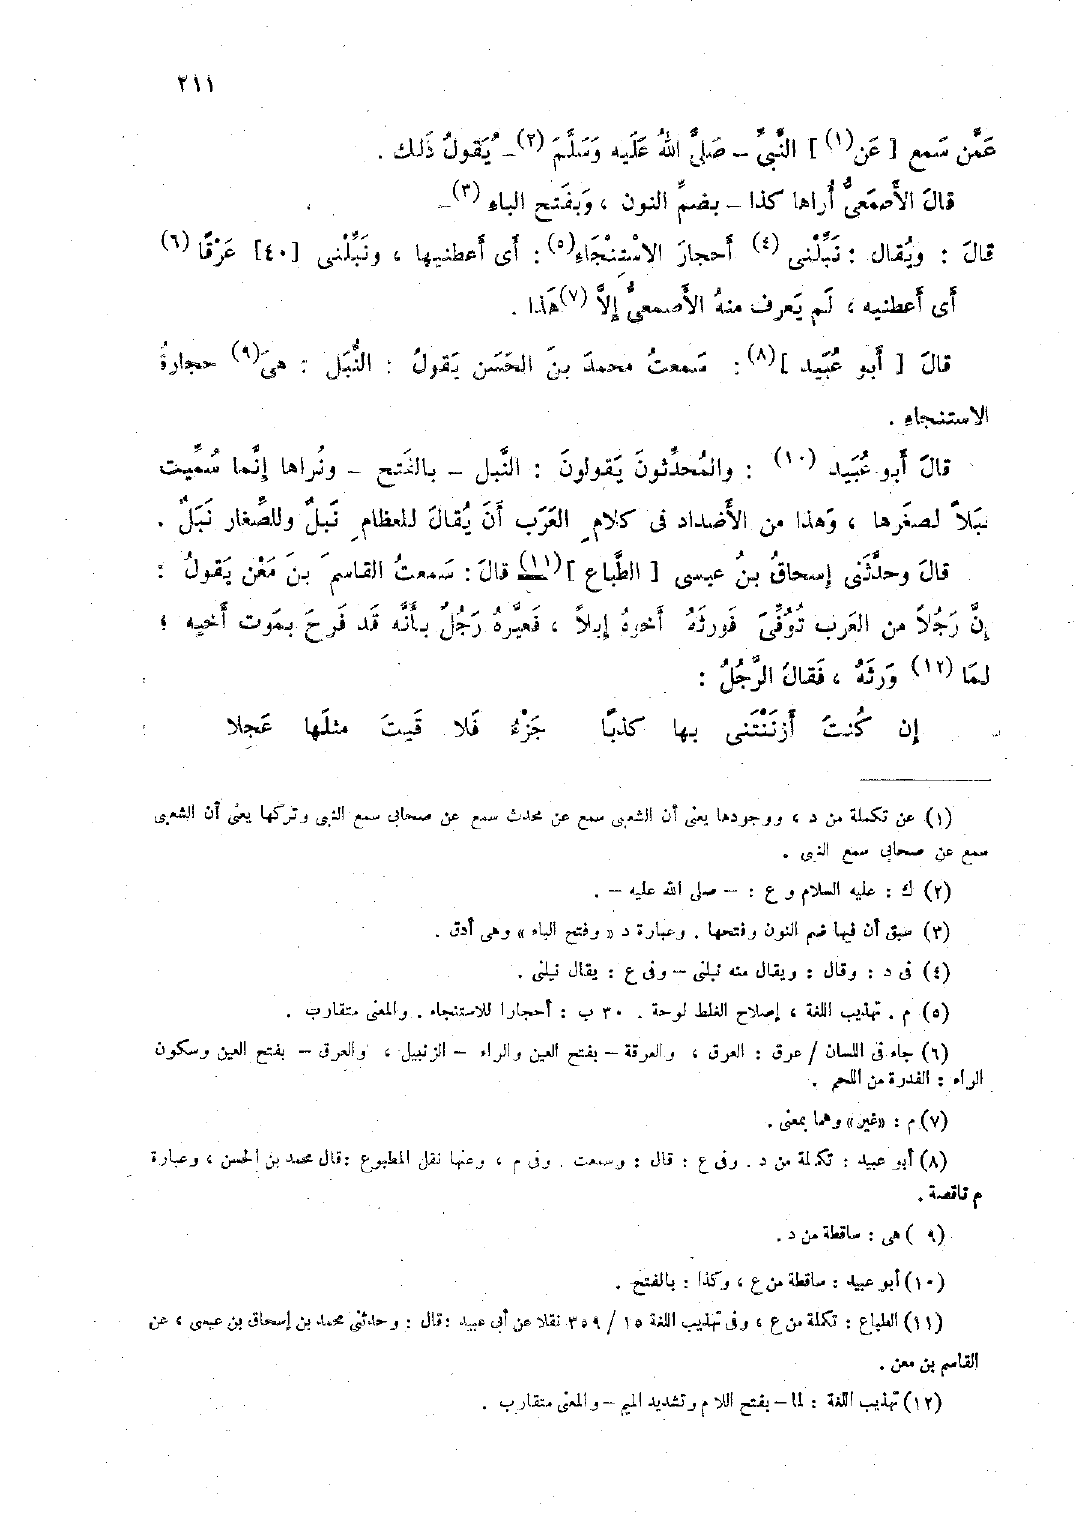 ٢١١
عَمَّن سَمع [ عَن(١) ] النَّبىِّ – صَلىَّ اللهُ عَلَيه وَسَلَّمَ (٢)– يَقولُ ذَلك .
قالَ الأَصمَعىُّ أُراها كذا – بضمِّ النون ، وَبفَتح الباء (٣)–
قالَ : ويُقال : نَبِّلْنى (٤) أَحجارَ الاسْتِنْجَاءِ(٥) : أى أَعطنيها ، ونَبِّلْنى [٤٠] عَرْقًا (٦)
أَى أَعطنيه ، لَم يَعرف منهُ الأَصمعىُّ إلاَّ (٧)هَذا .
قالَ [ أَبو عُبَيد ](٨) : سَمعتُ محمدَ بنَ الحَسَن يَقولُ : النُّبَل : هىَ(٩) حجارةُ
الاستنجاءِ .
قالَ أَبو عُبَيد (١٠) : والمُحدِّثونَ يَقولونَ : النَّبل – بالفَتح – ونُراها إنَّما سُمِّيت
نبَلاً لصغَرها ، وَهذا من الأَضداد فى كلامِ العَرَب أَنَ يُقالَ للعظامِ نَبلٌ وللصِّغار نَبَلٌ .
قالَ وحدَّثَنى إسحاقُ بنُ عيسى [ الطَّباع ](١١) قالَ : سَمعتُ القاسمَ بنَ مَعْن يَقولُ :
إنَّ رَجُلاً من العَرب تُوُفِّىَ فَورثَهُ أخوهُ إبلاً ، فَعيَّرهُ رَجُلٌ بأنَّه قَد فَرحَ بمَوت أَخيه ؛
لمَا (١٢) وَرثَهُ ، فَقالَ الرَّجُلُ :
إن كُنتَ أَزنَنْتَنى بها كذبًا جَزْءُ فَلا قَيتَ مثلَها عَجلا
(١) عن تكملة من د ، ووجودها يعنى أن الشعبى سمع عن محدث سمع عن صحابى سمع النبى وتركها يعنى أن الشعبى
سمع عن صحابى سمع النبى .
(٢) ك : عليه السلام و ع : – صلى الله عليه – .
(٣) سبق أن فيها ضم النون وفتحها . وعبارة د « وفتح الباء » وهى أدق .
(٤) فى د : وقال : ويقال منه نبلنى – وفى ع : يقال نبلنى .
(٥) م . تهذيب اللغة ، إصلاح الغلط لوحة . ٣٠ ب : أحجارا للاستنجاء . والمعنى متقارب .
(٦) جاء فى اللسان / عرق : العرق ، والعرقة – بفتح العين والراء – الزنبيل ، والعرق – بفتح العين وسكون
الراء : الفدرة من اللحم .
(٧) م : «غير» وهما بمعنى .
(٨) أبو عبيد : تكملة من د . وفى ع : قال : وسمعت . وفى م ، وعنها نقل المطبوع :قال محمد بن الحسن ، وعبارة
م ناقصة .
(٩ ) هى : ساقطة من د .
(١٠) أبو عبيد : ساقطة من ع ، وكذا : بالفتح .
(١١) الطباع : تكملة من ع ، وفى تهذيب اللغة ١٥ / ٣٥٩ نقلا عن أبى عبيد :قال : وحدثنى محمد بن إسحاق بن عيسى ، عن
القاسم بن معن .
(١٢) تهذيب اللغة : لما – بفتح اللام وتشديد الميم – والمعنى متقارب .